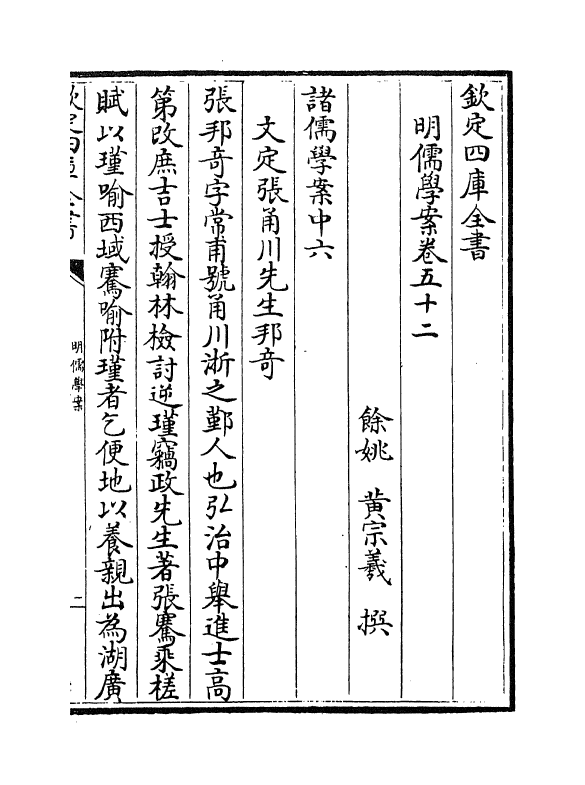 欽定四庫全書
明儒學案卷五十二
餘姚　黄宗羲　撰
諸儒學案中六
文定張甬川先生邦奇
張邦奇字常甫號甬川浙之鄞人也弘治中舉進士高
第改庶吉士授翰林檢討逆瑾竊政先生著張騫乘槎
賦以瑾喻西域騫喻附瑾者乞便地以養親出為湖廣
欽定四庫全書
明儒學案